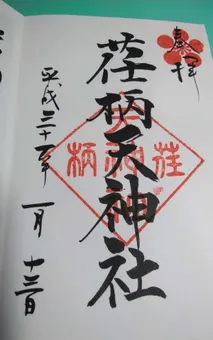 奉拝
荏柄天神社
荏柄
平成三十一年
一月
十三日